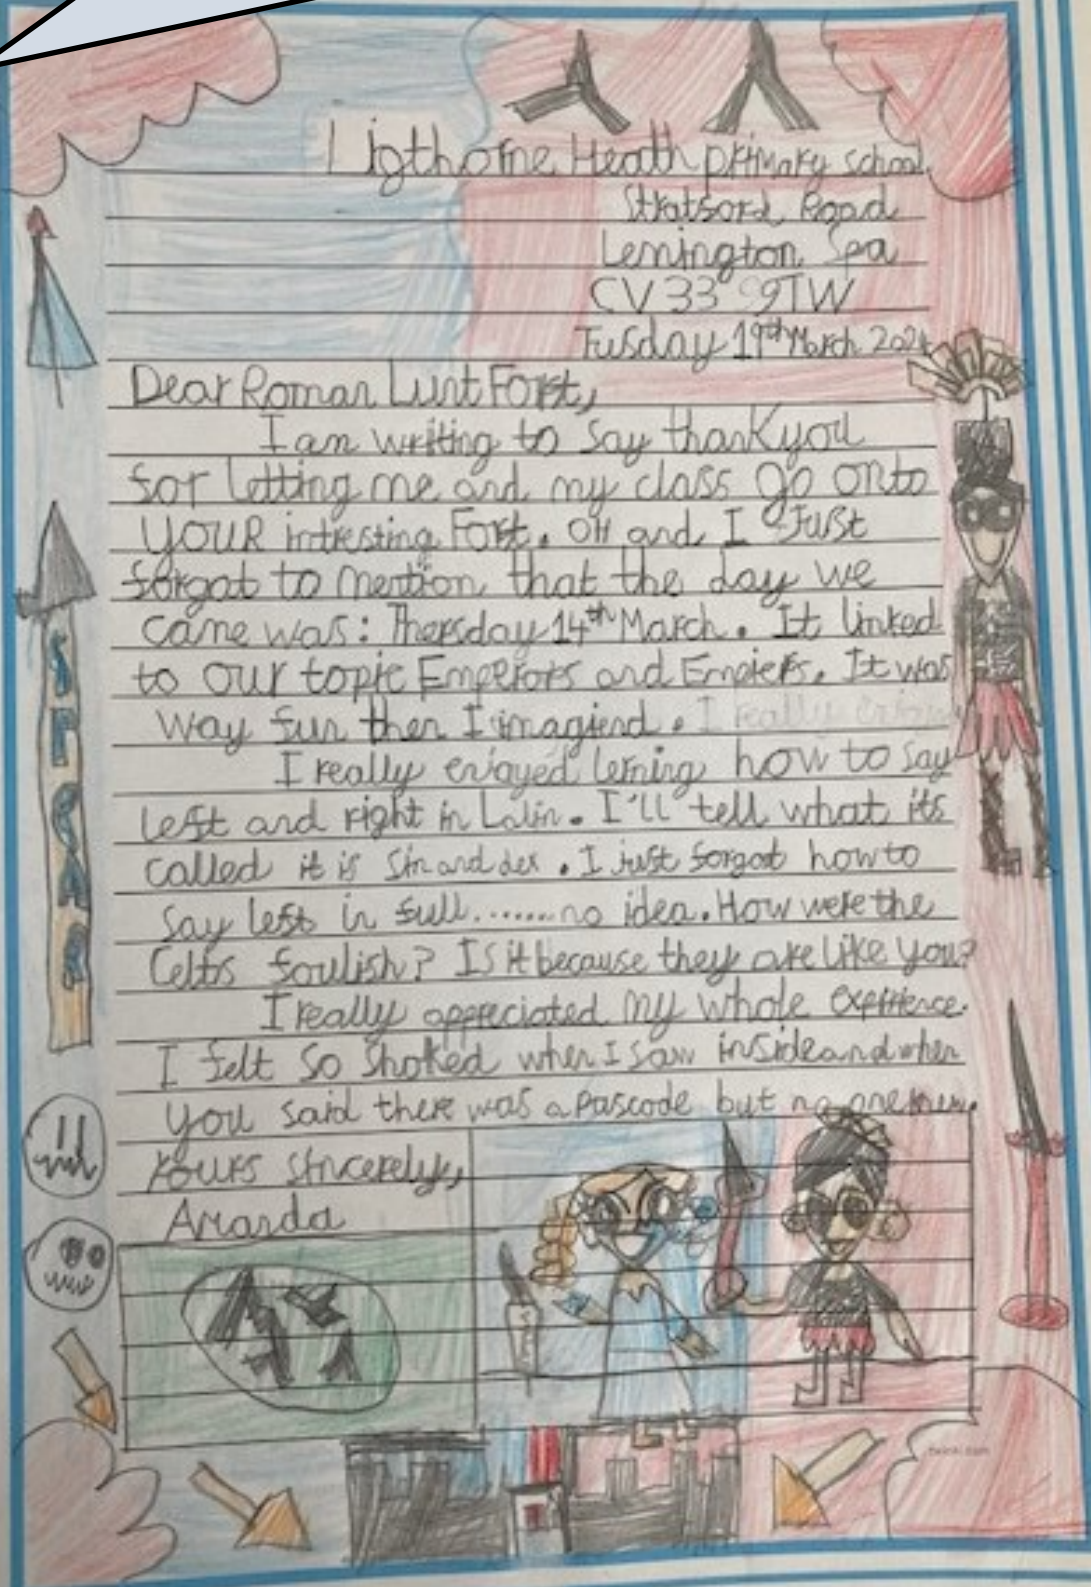 Ligthorne Heath primary school
Stratsord Road
Lemington Spa
CV33 9TW
Tusday 19th March 2024
Dear Roman Lunt Fort,
I am writing to say thankyou
for letting me and my class go onto
your intresting Fort. OH and I Just
forgot to mention that the day we
came was: Thersday 14th March. It linked
to our topic Emperors and Empiers. It was
way fun then I imagiend. I really enjoy
I really enjayed lerning how to say
left and right in Latin. I'll tell what its
called it is Sin and dex. I just forgot how to
say left in full.......no idea. How were the
Celts foulish? Is it because they are like you?
I really appreciated my whole experience.
I felt so shoked when I saw inside and when
you said there was a pascode but no one knew.
Yours sincerely,
Amanda
SPEAR
twinkl.com